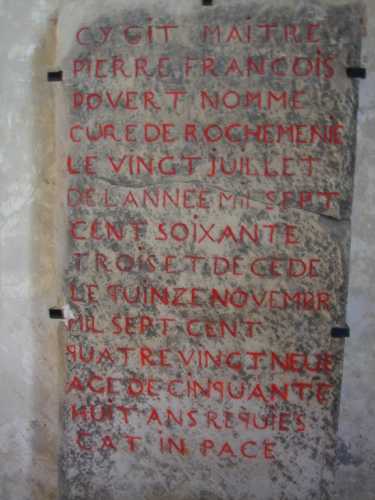 CY GIT MAITRE
PIERRE FRANCOIS
POVERT NOMME
CURE DE ROCHEMENIE
LE VINGT JUILLET
DE LANNEE MIL SEPT
CENT SOIXANTE
TROIS ET DECEDE
LE QUINZE NOVEMBR
MIL SEPT CENT
QUATRE VINGT NEUF
AGE DE CINQUANTE
HUIT ANS REQUIES
CAT IN PACE